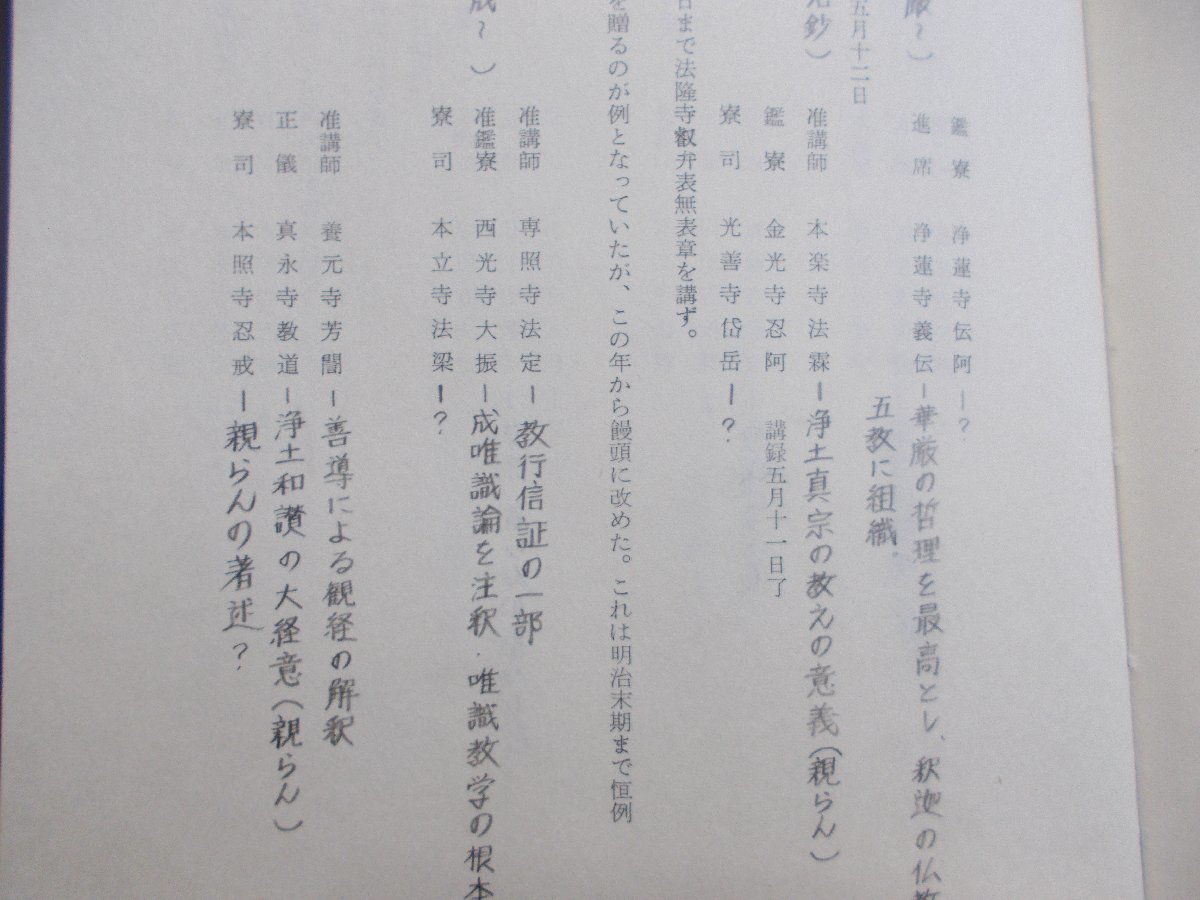 鑑寮 浄蓮寺伝阿ー?
厳~)
進席 浄蓮寺義伝ー華厳の哲理を最高とし、釈迦の仏教
五教に組織。
五月十二日
鈔)
准講師 本楽寺法霖ー浄土真宗の教えの意義(親らん)
鑑寮 金光寺忍阿 講録五月十一日了
寮司 光善寺岱岳ー?
日まで法隆寺叡弁表無表章を講ず。
を贈るのが例となっていたが、この年から饅頭に改めた。これは明治末期まで恒例
准講師 専照寺法定ー教行信証の一部
成~)
准鑑寮 西光寺大振ー成唯識論を注釈.唯識教学の根本
寮司 本立寺法梁ー?
准講師 養元寺芳誾ー善導による観経の解釈
正儀 真永寺教道ー浄土和讃の大経意(親らん)
寮司 本照寺忍戒ー親らんの著述?